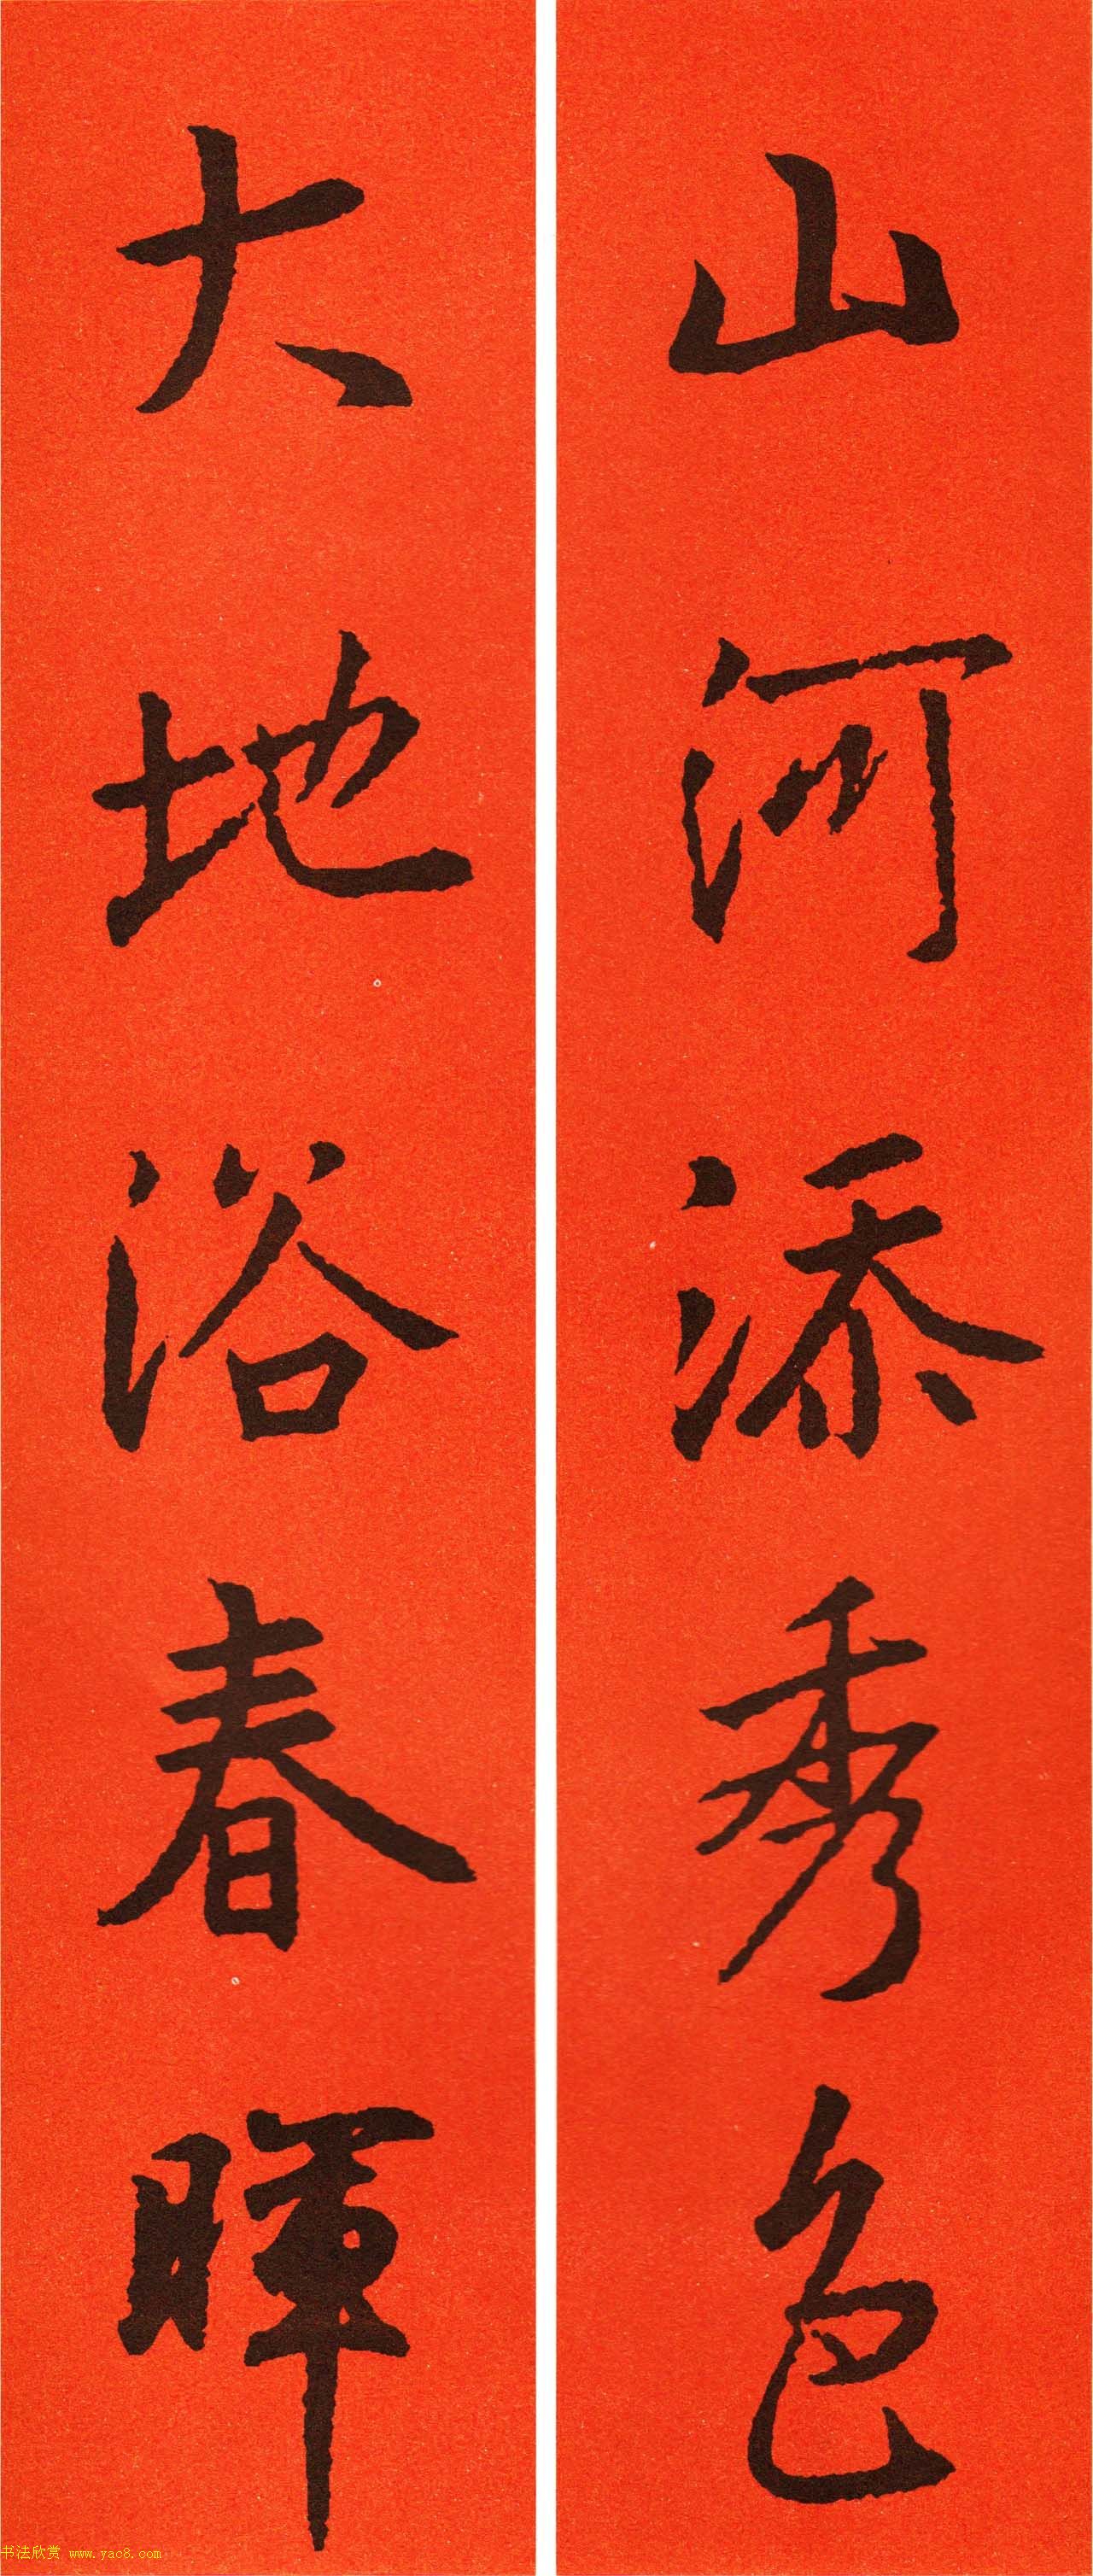 山河添秀色
大地浴春暉
书法欣赏 www.yac8.com